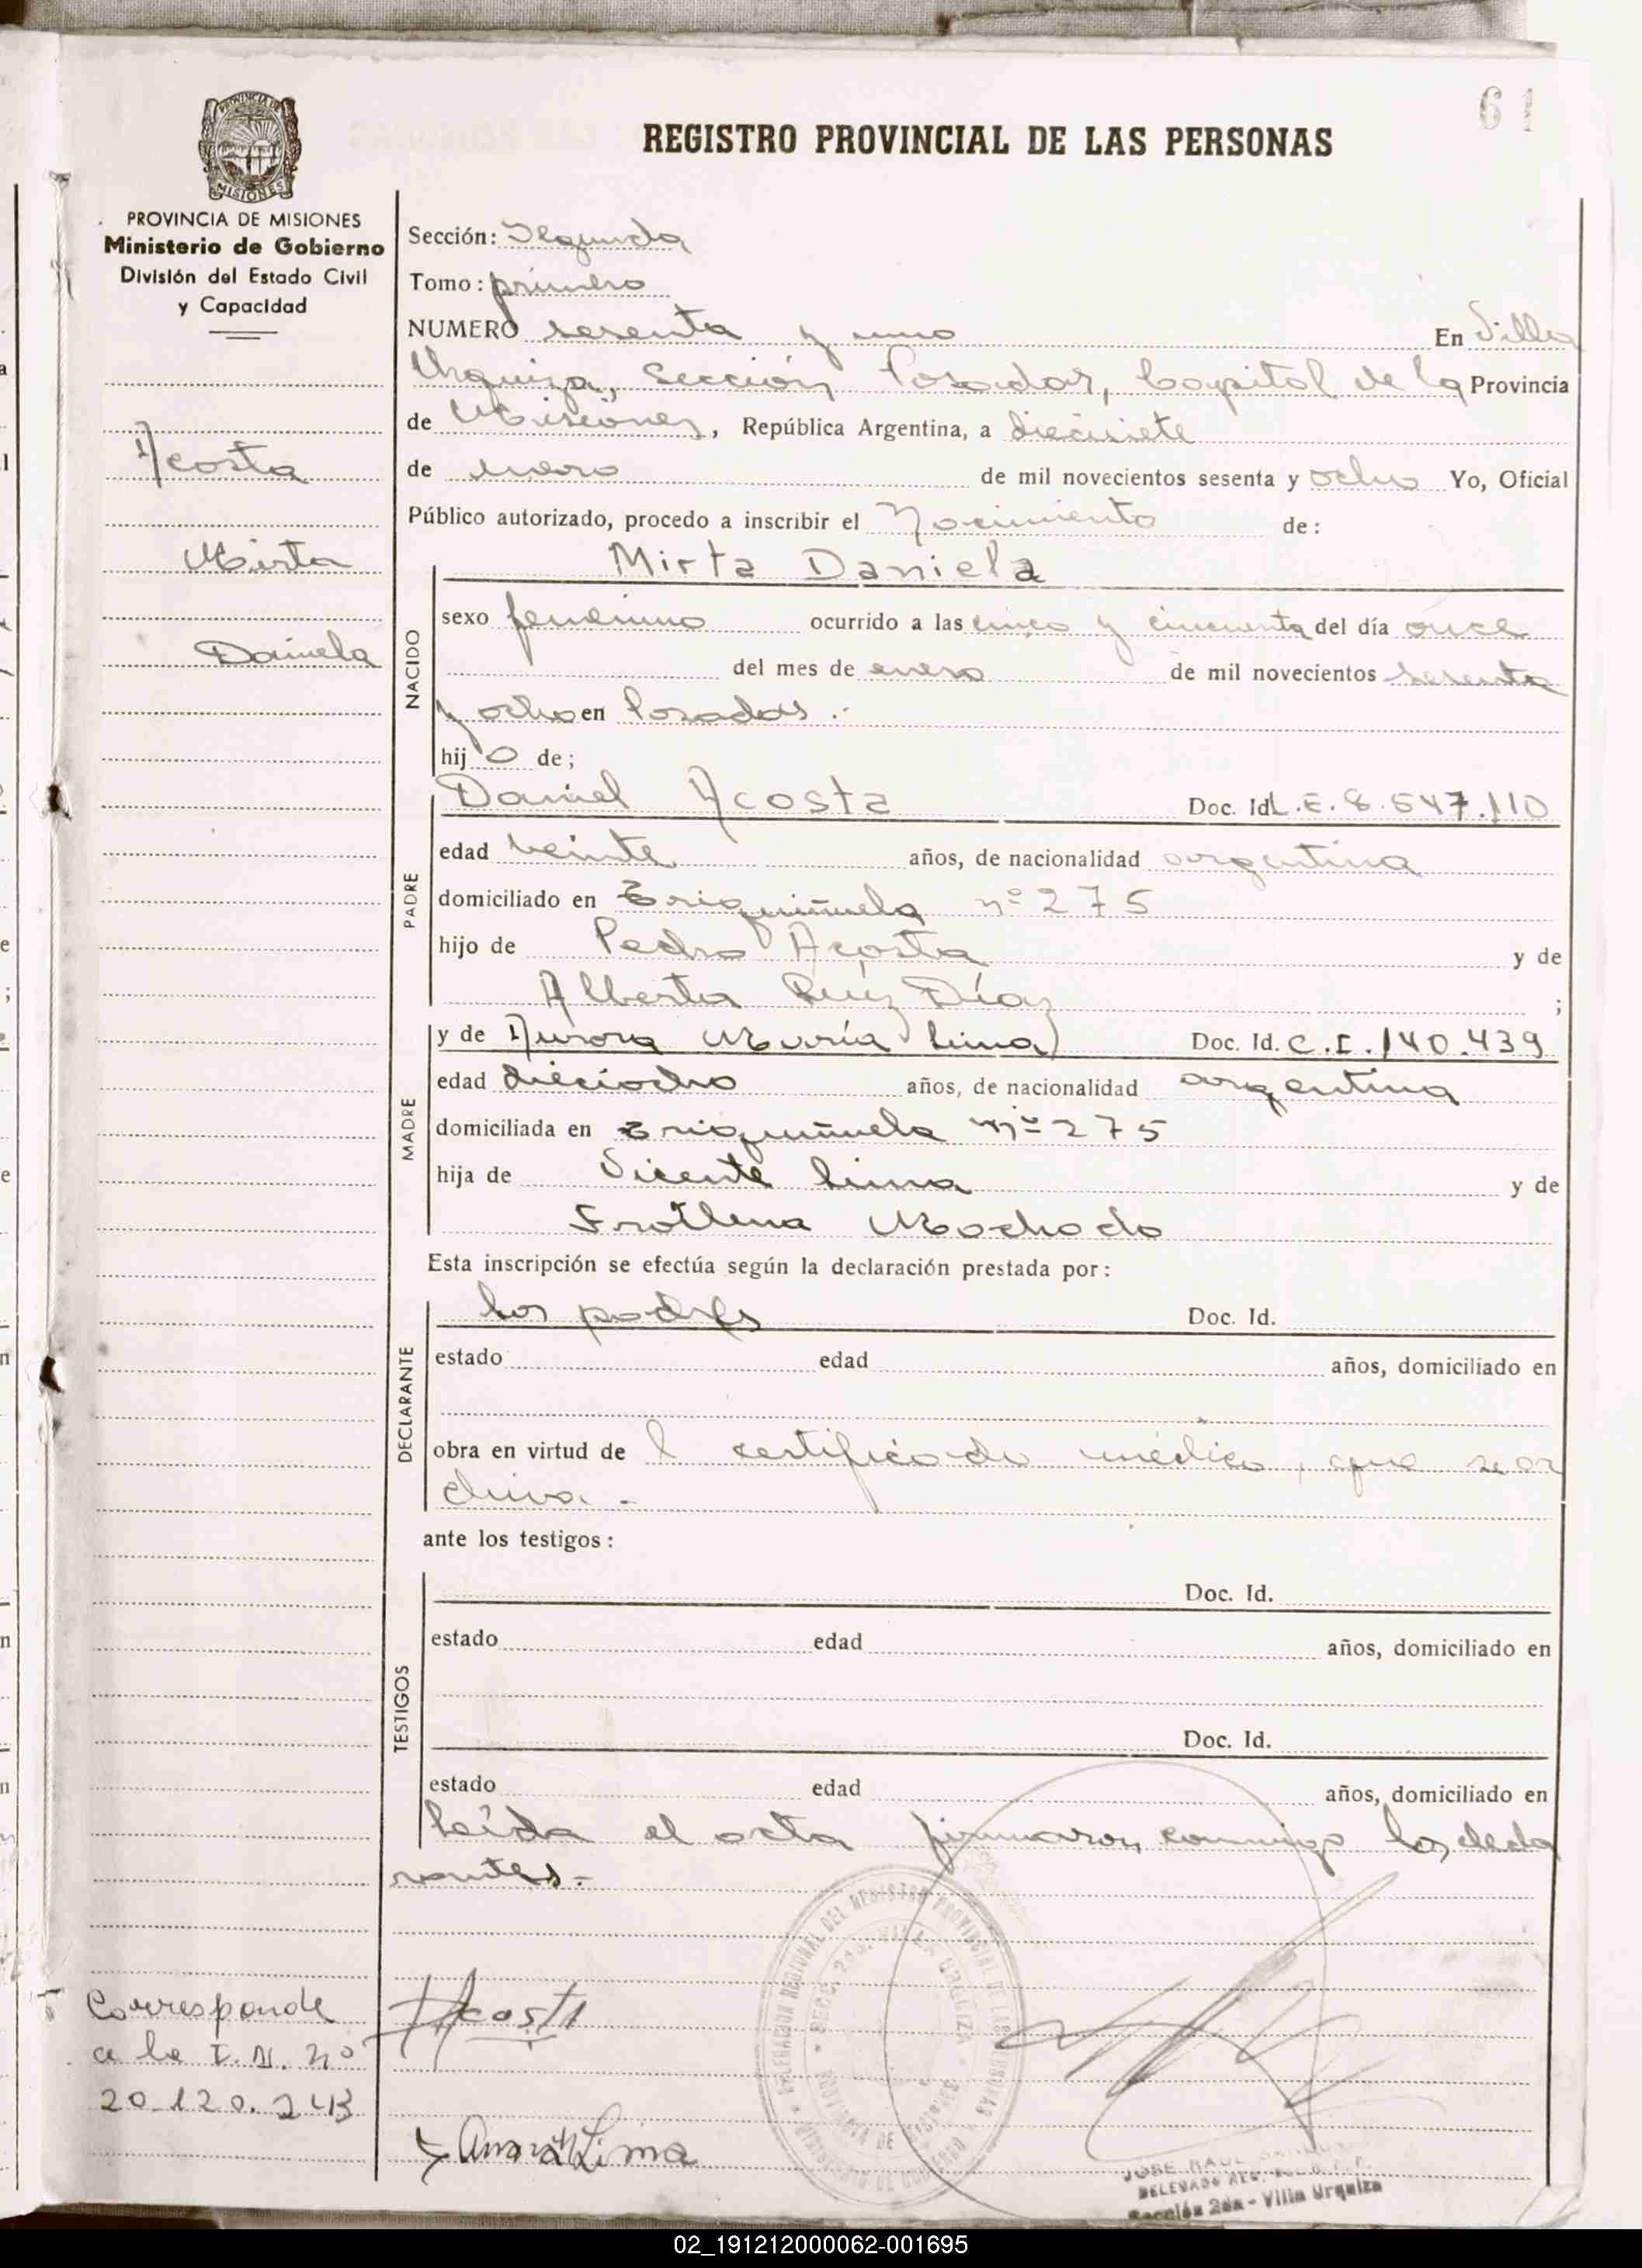 61
REGISTRO PROVINCIAL DE LAS PERSONAS
PROVINCIA DE MISIONES
Ministerio de Gobierno
División del Estado Civil
y Capacidad
Acosta
Mirta
Daniela
Sección: Segunda
Tomo: primero
NUMERO sesenta y uno En Villa
Urquiza, Sección Posadas, Capital de la Provincia
de Misiones, República Argentina, a diecisiete
de enero de mil novecientos sesenta y ocho Yo, Oficial
Público autorizado, procedo a inscribir el Nacimiento de:
Mirta Daniela
NACIDO
sexo femenino ocurrido a las cinco y cincuenta del día once
del mes de enero de mil novecientos sesenta
y ocho en Posadas.-
hij a de;
PADRE
Daniel Acosta Doc. Id. L.E. 8.547.110
edad veinte años, de nacionalidad argentina
domiciliado en nº 275
hijo de Pedro Acosta y de
Alberta Ruíz Díaz ;
MADRE
y de Aurora María Lima Doc. Id. C.I. 140.439
edad dieciocho años, de nacionalidad argentina
domiciliada en nº 275
hija de Vicente Lima y de
Machado
Esta inscripción se efectúa según la declaración prestada por:
DECLARANTE
los padres Doc. Id.
estado edad años, domiciliado en
obra en virtud de l certificado médico, que se ar
chiva.-
ante los testigos:
TESTIGOS
Doc. Id.
estado edad años, domiciliado en
Doc. Id.
estado edad años, domiciliado en
Leída el acta firmaron conmigo los decla
rantes.-
Corresponde
a la I.N. nº
20.120.243
Acosta
Lima
JOSE RAUL
Sección 2da - Villa Urquiza
02_191212000062-001695